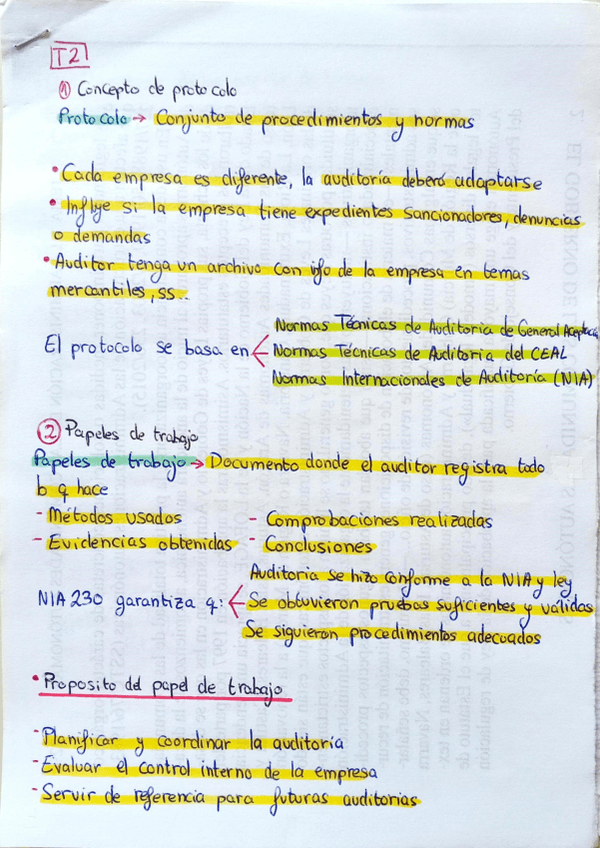 T2
① Concepto de protocolo
Protocolo → Conjunto de procedimientos y normas
• Cada empresa es diferente, la auditoría deberá adaptarse
• Influye si la empresa tiene expedientes sancionadores, denuncias
o demandas
• Auditor tenga un archivo con info de la empresa en temas
mercantiles, ss..
El protocolo se basa en
Normas Técnicas de Auditoria de General Aceptación
Normas Técnicas de Auditoria del CEAL
Normas Internacionales de Auditoría (NIA)
② Papeles de trabajo
Papeles de trabajo → Documento donde el auditor registra todo
lo q hace
- Métodos usados - Comprobaciones realizadas
- Evidencias obtenidas - Conclusiones
NIA 230 garantiza q:
Auditoria se hizo conforme a la NIA y ley
Se obtuvieron pruebas suficientes y válidas
Se siguieron procedimientos adecuados
• Proposito del papel de trabajo
- Planificar y coordinar la auditoría
- Evaluar el control interno de la empresa
- Servir de referencia para futuras auditorias